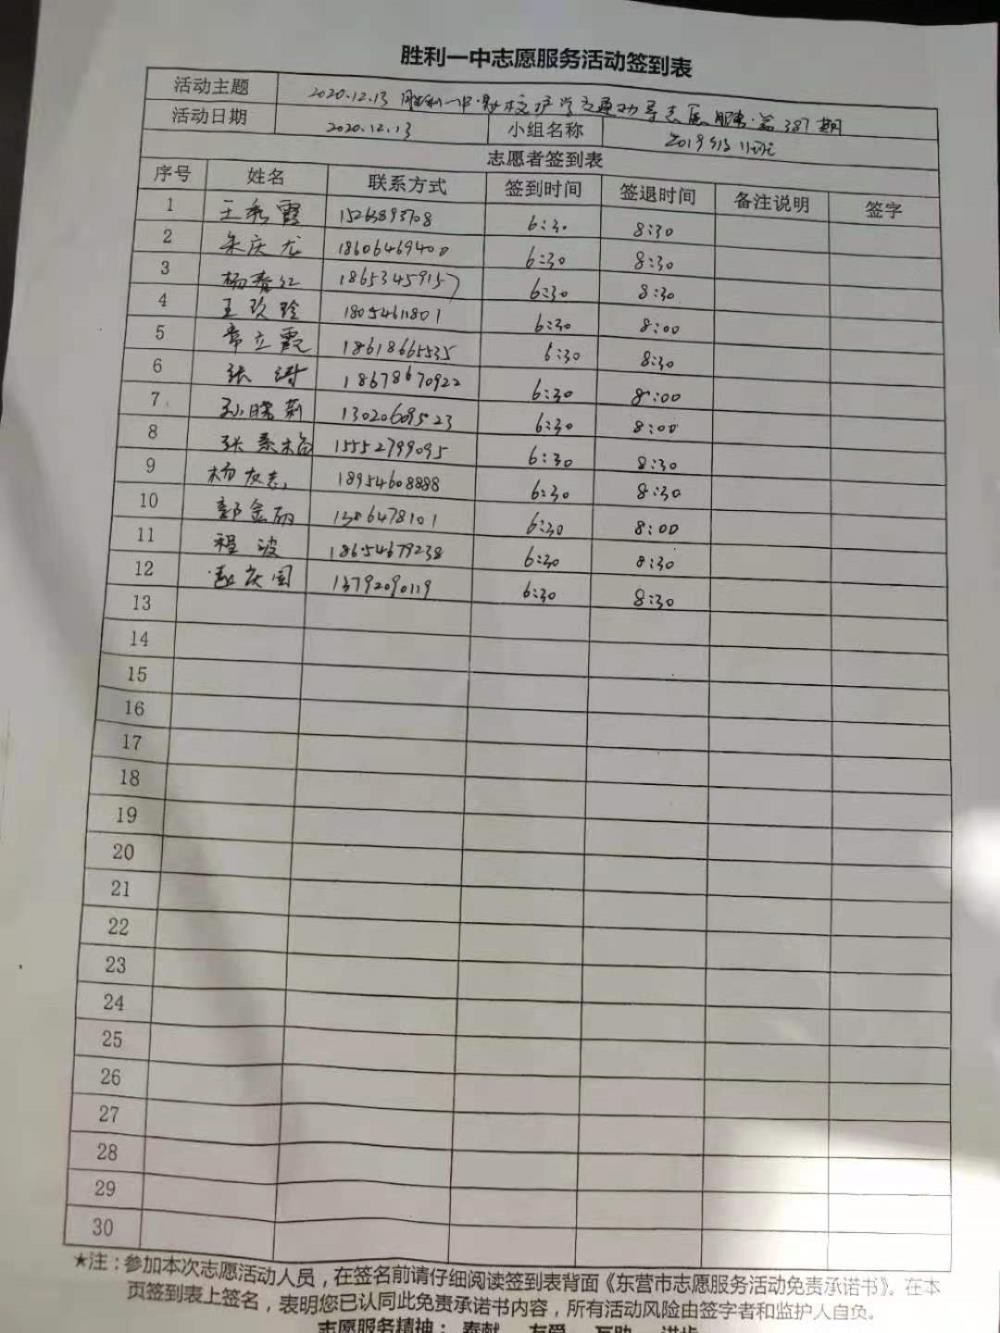 胜利一中志愿服务活动签到表
活动主题 2020.12.13 胜利一中 护学交通劝导志愿服务·第387期
活动日期 2020.12.13 小组名称 2019级11班
志愿者签到表
序号 姓名 联系方式 签到时间 签退时间 备注说明 签字
1 王秀霞 15263893708 6:30 8:30
2 朱庆龙 18606469400 6:30 8:30
3 杨春红 18653459157 6:30 8:30
4 王玖玲 1805461801 6:30 8:00
5 常立霞 18618665535 6:30 8:30
6 张涛 18678670922 6:30 8:00
7 孙晓莉 13020609523 6:30 8:00
8 张素梅 15552799095 6:30 8:30
9 杨友志 18954608888 6:30 8:30
10 郭金丽 1386478101 6:30 8:00
11 程波 18654679238 6:30 8:30
12 庆国 13792090119 6:30 8:30
13
14
15
16
17
18
19
20
21
22
23
24
25
26
27
28
29
30
★注：参加本次志愿活动人员，在签名前请仔细阅读签到表背面《东营市志愿服务活动免责承诺书》。在本
页签到表上签名，表明您已认同此免责承诺书内容，所有活动风险由签字者和监护人自负。
志愿服务精神：奉献 友爱 互助 进步